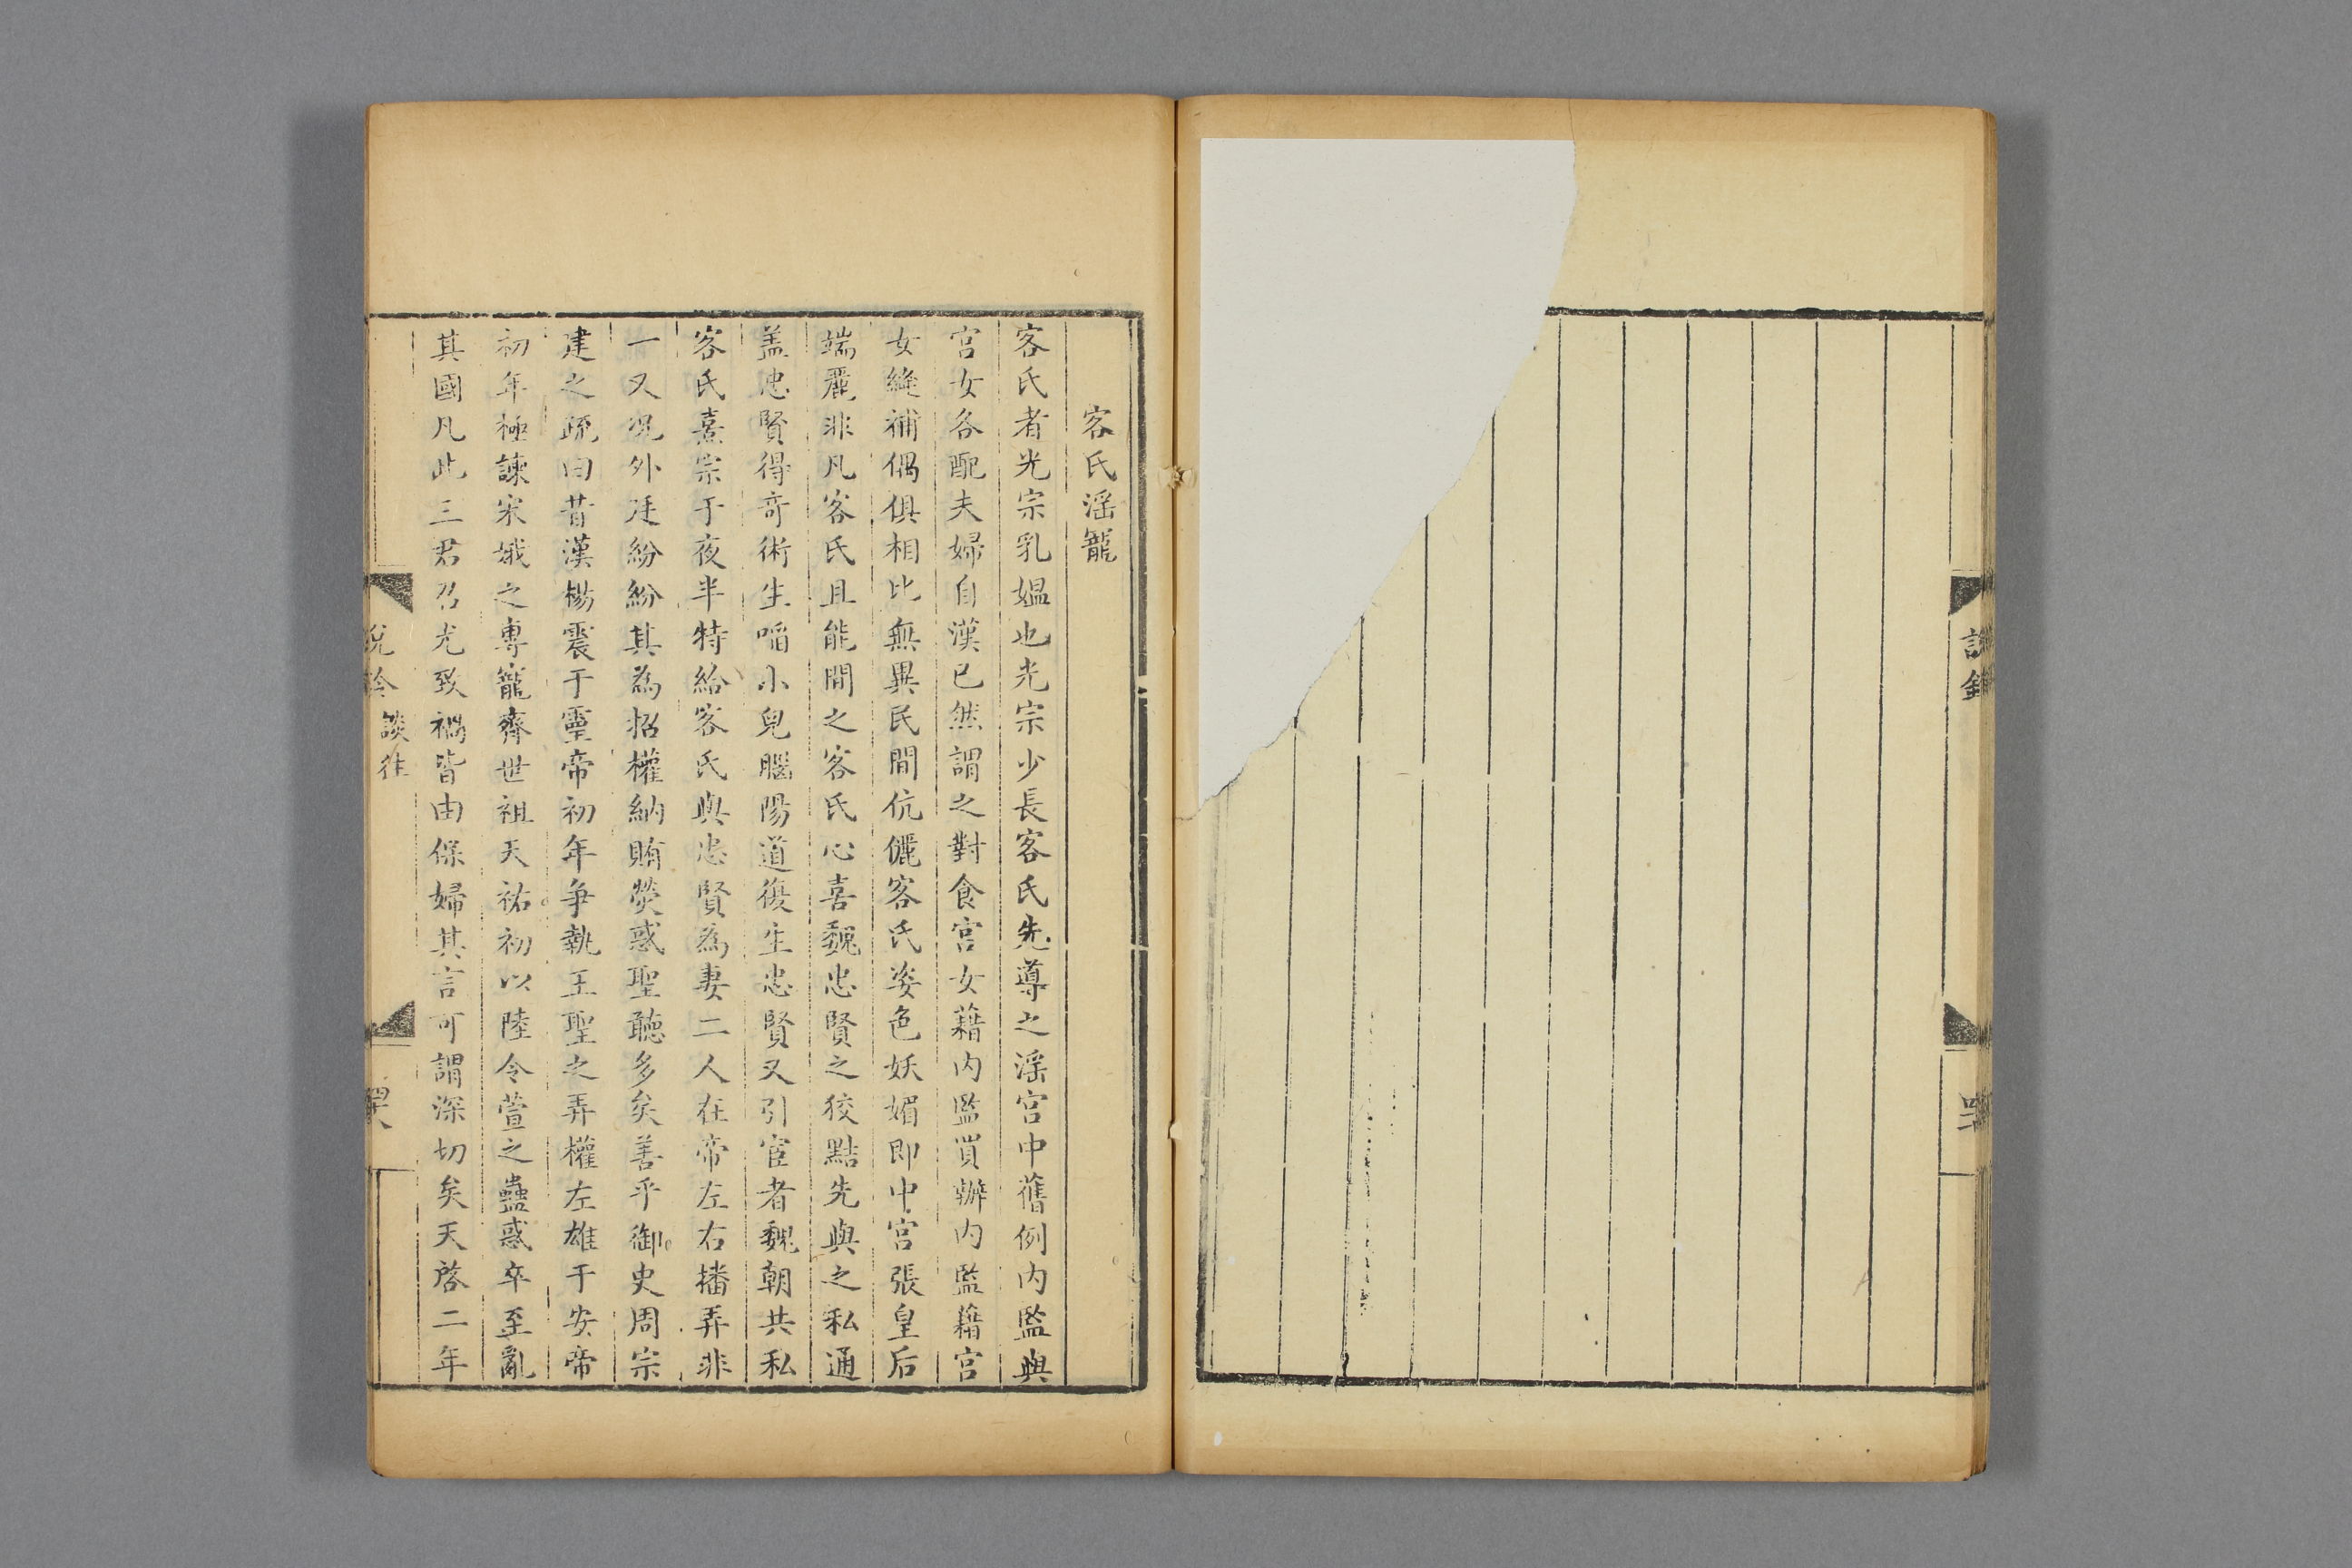 客氏淫寵
客氏者光宗乳媼也光宗少長客氏先導之淫宫中舊例内監與
宫女各配夫婦自漢已然謂之對食宫女藉内監買辦内監藉宫
女縫補偶俱相比無異民間伉儷客氏姿色妖媚即中宫張皇后
端麗非凡客氏且能間之客氏心喜魏忠賢之狡黠先與之私通
盖忠賢得奇術生啗小兒腦陽道復生忠賢又引宦者魏朝共私
客氏熹宗于夜半特給客氏與忠賢為妻二人在帝左右播弄非
一又况外廷紛紛其為招權納賄熒惑聖聽多矣善乎御史周宗
建之疏曰昔漢楊震于靈帝初年争執王聖之弄權左雄于安帝
初年極諫宋娥之專寵齊世祖天祐初以陸令萱之蠱惑卒至亂
其國凡此三君召尤致禍皆由保婦其言可謂深切矣天啓二年
説鈴
談往